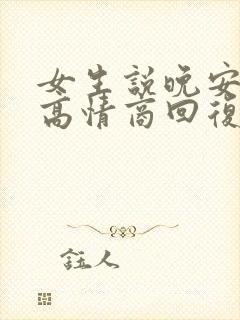 女生説晚安
高情商回復
註人